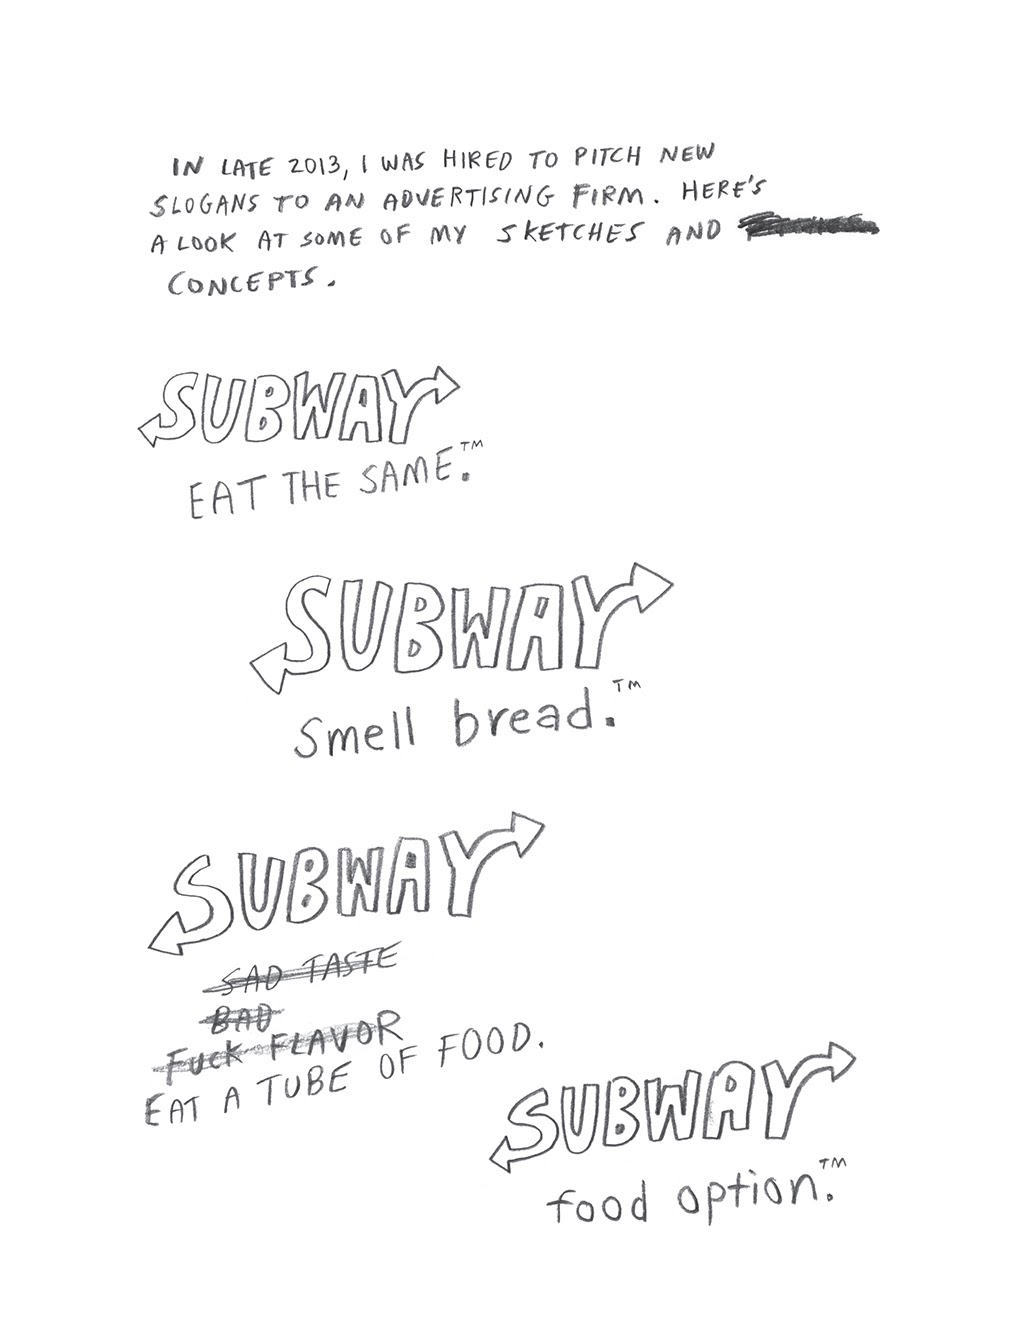 IN LATE 2013, I WAS HIRED TO PITCH NEW
SLOGANS TO AN ADVERTISING FIRM. HERE'S
A LOOK AT SOME OF MY SKETCHES AND
CONCEPTS.
SUBWAY
EAT THE SAME.™
SUBWAY
Smell bread.™
SUBWAY
SAD TASTE
BAD
FUCK FLAVOR
EAT A TUBE OF FOOD.
SUBWAY
food option.™